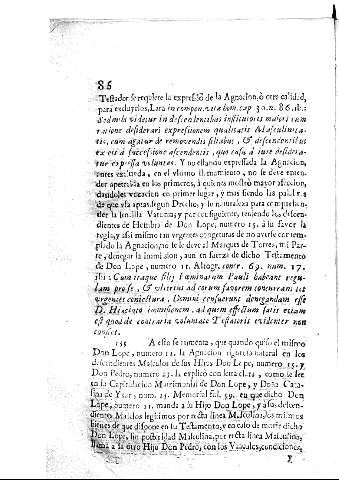 86
Testador se requiere la expressió de la Agnacion, ò otra calidad,
para excluyrlos, Lara in compen. vitæ hom. cap. 30. n. 86. ibi:
videtur in descendentibus institutores maiori cum
ratione desiderari expressionem qualitatis Masculinita-
tis, cum agatur de removendis filiabus, & descendentibus
ex eis à successione ascendentis, quo casu à iure desidera-
tur expressa voluntas. Y no estando expressada la Agnacion,
antes excluida, en el vltimo llamamiento, no se deve enten-
der apetecida en los primeros, à quienes mostrò mayor afeccion,
dandoles vocacion en primer lugar, y mas siendo las palabras
de que vsa aptas segun Derecho, y su naturaleza para comprehen-
der la simple Varonia; y por consiguiente, teniendo los descen-
dientes de Hembra de Don Lope, numero 15. à su favor la
regla, y assi mismo tan vrgentes congeturas de no averse contem-
plado la Agnacion, no se le deve al Marques de Torres, mi Par-
te, denegar la immission, aun en fuerza de dicho Testamento
de Don Lope, numero 11. Altogr. contr. 69. num. 17.
ibi: Cum itaque filij Fæminarum Pauli habeant regu-
lam pro se, & vlterius ad eorum favorem concurrant tot
vrgentes coniecturæ, Domini censuerunt denegandam esse
D. Hyacinto immissionem, ad quem effectum satis etiam
est quod de contraria voluntate Testatoris evidenter non
constet.
155 A esto se aumenta, que quando quiso el mismo
Don Lope, numero 11. la Agnacion rigurosa natural en los
descendientes Masculos de sus Hijos Don Lope, numero 15. y
Don Pedro, numero 23. la explicò con letra clara, como se lee
en la Capitulacion Matrimonial de Don Lope, y Doña Cata-
lina de Yxar, num. 25. Memorial fol. 59. en que dicho Don
Lope, numero 11. manda à su Hijo Don Lope, y à sus descen-
dientes Masclos legitimos por recta linea Masculina, los mismos
bienes de que dispone en su Testamento, y en caso de morir dicho
Don Lope, sin posteridad Masculina, por recta linea Masculina,
llama à su otro Hijo Don Pedro, con los Vinculos, condiciones,
Y